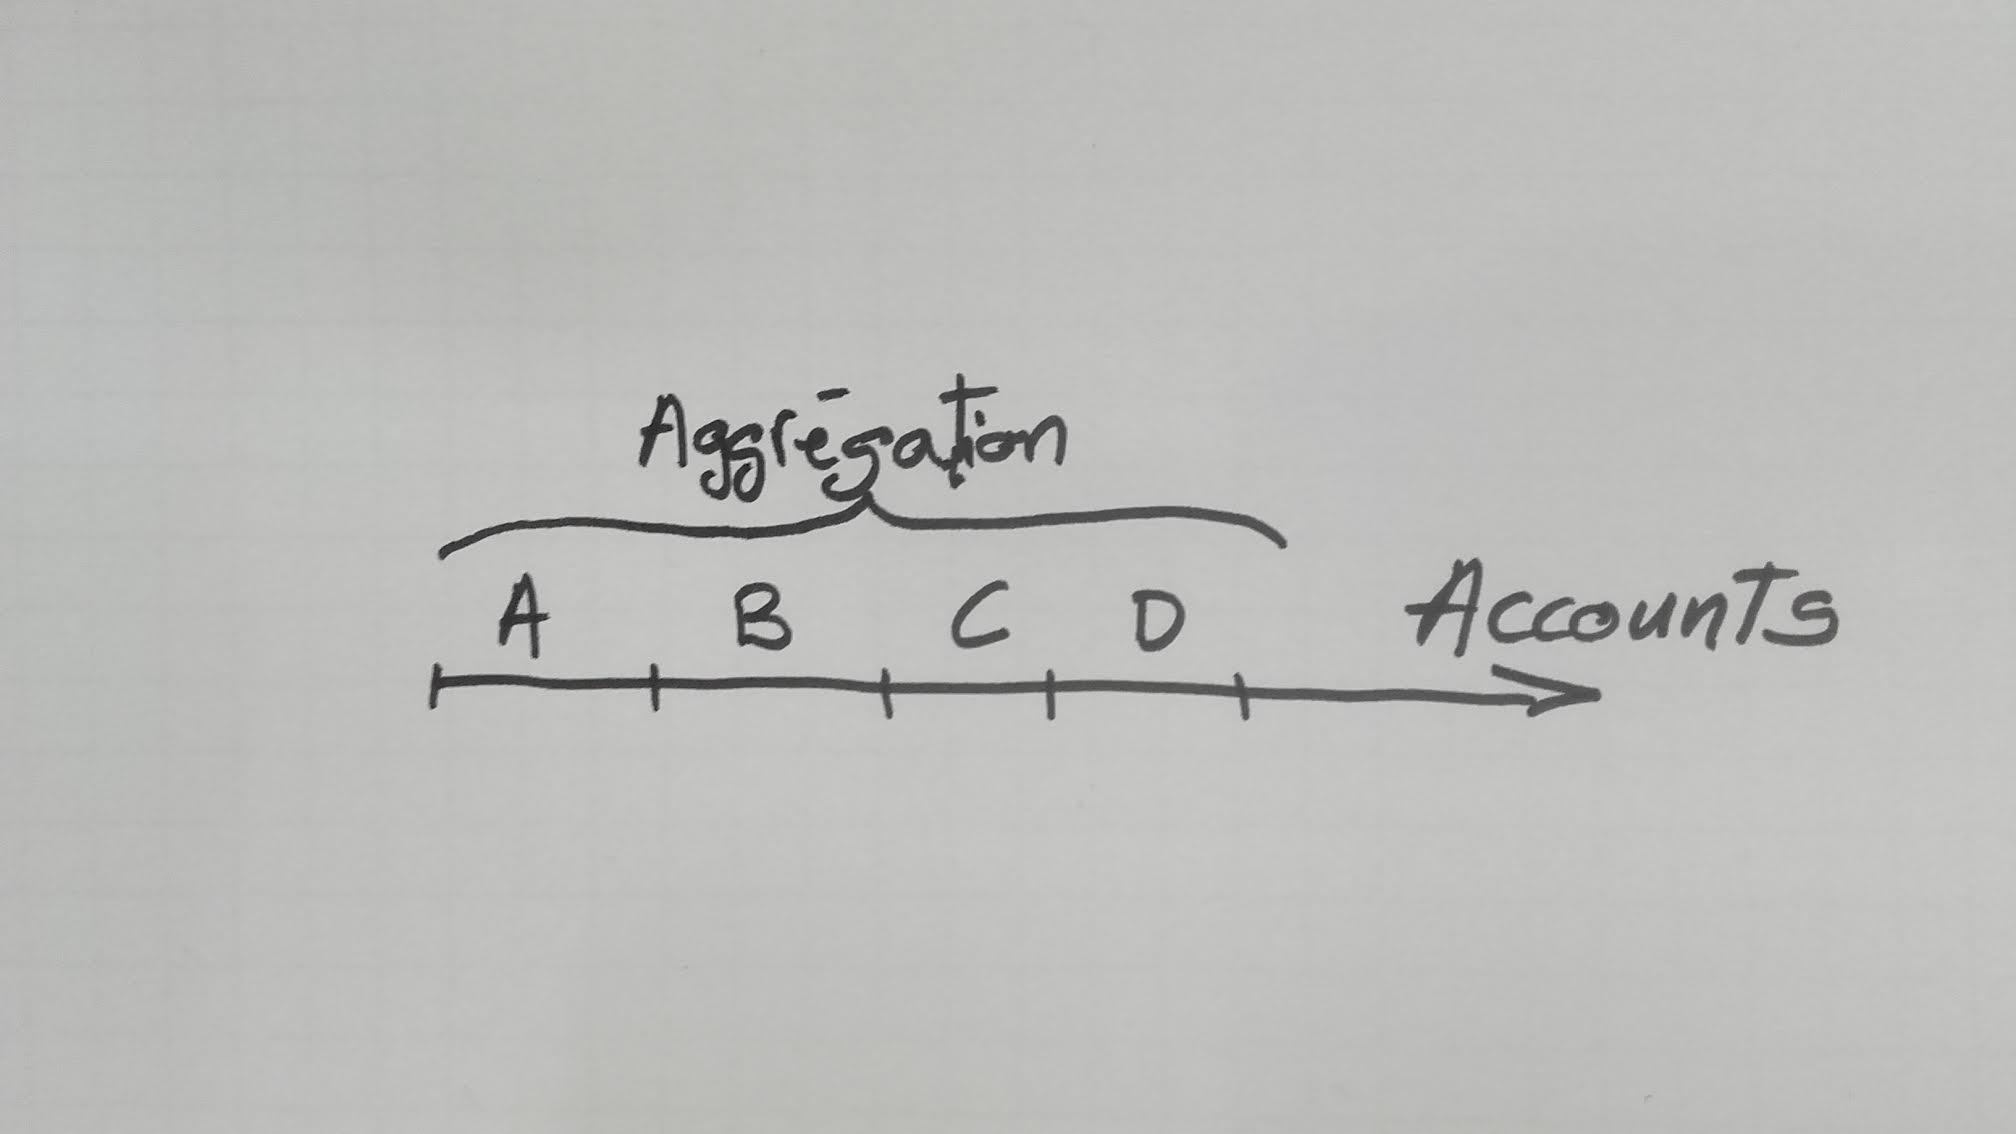 Aggrégation
A B C D
Accounts